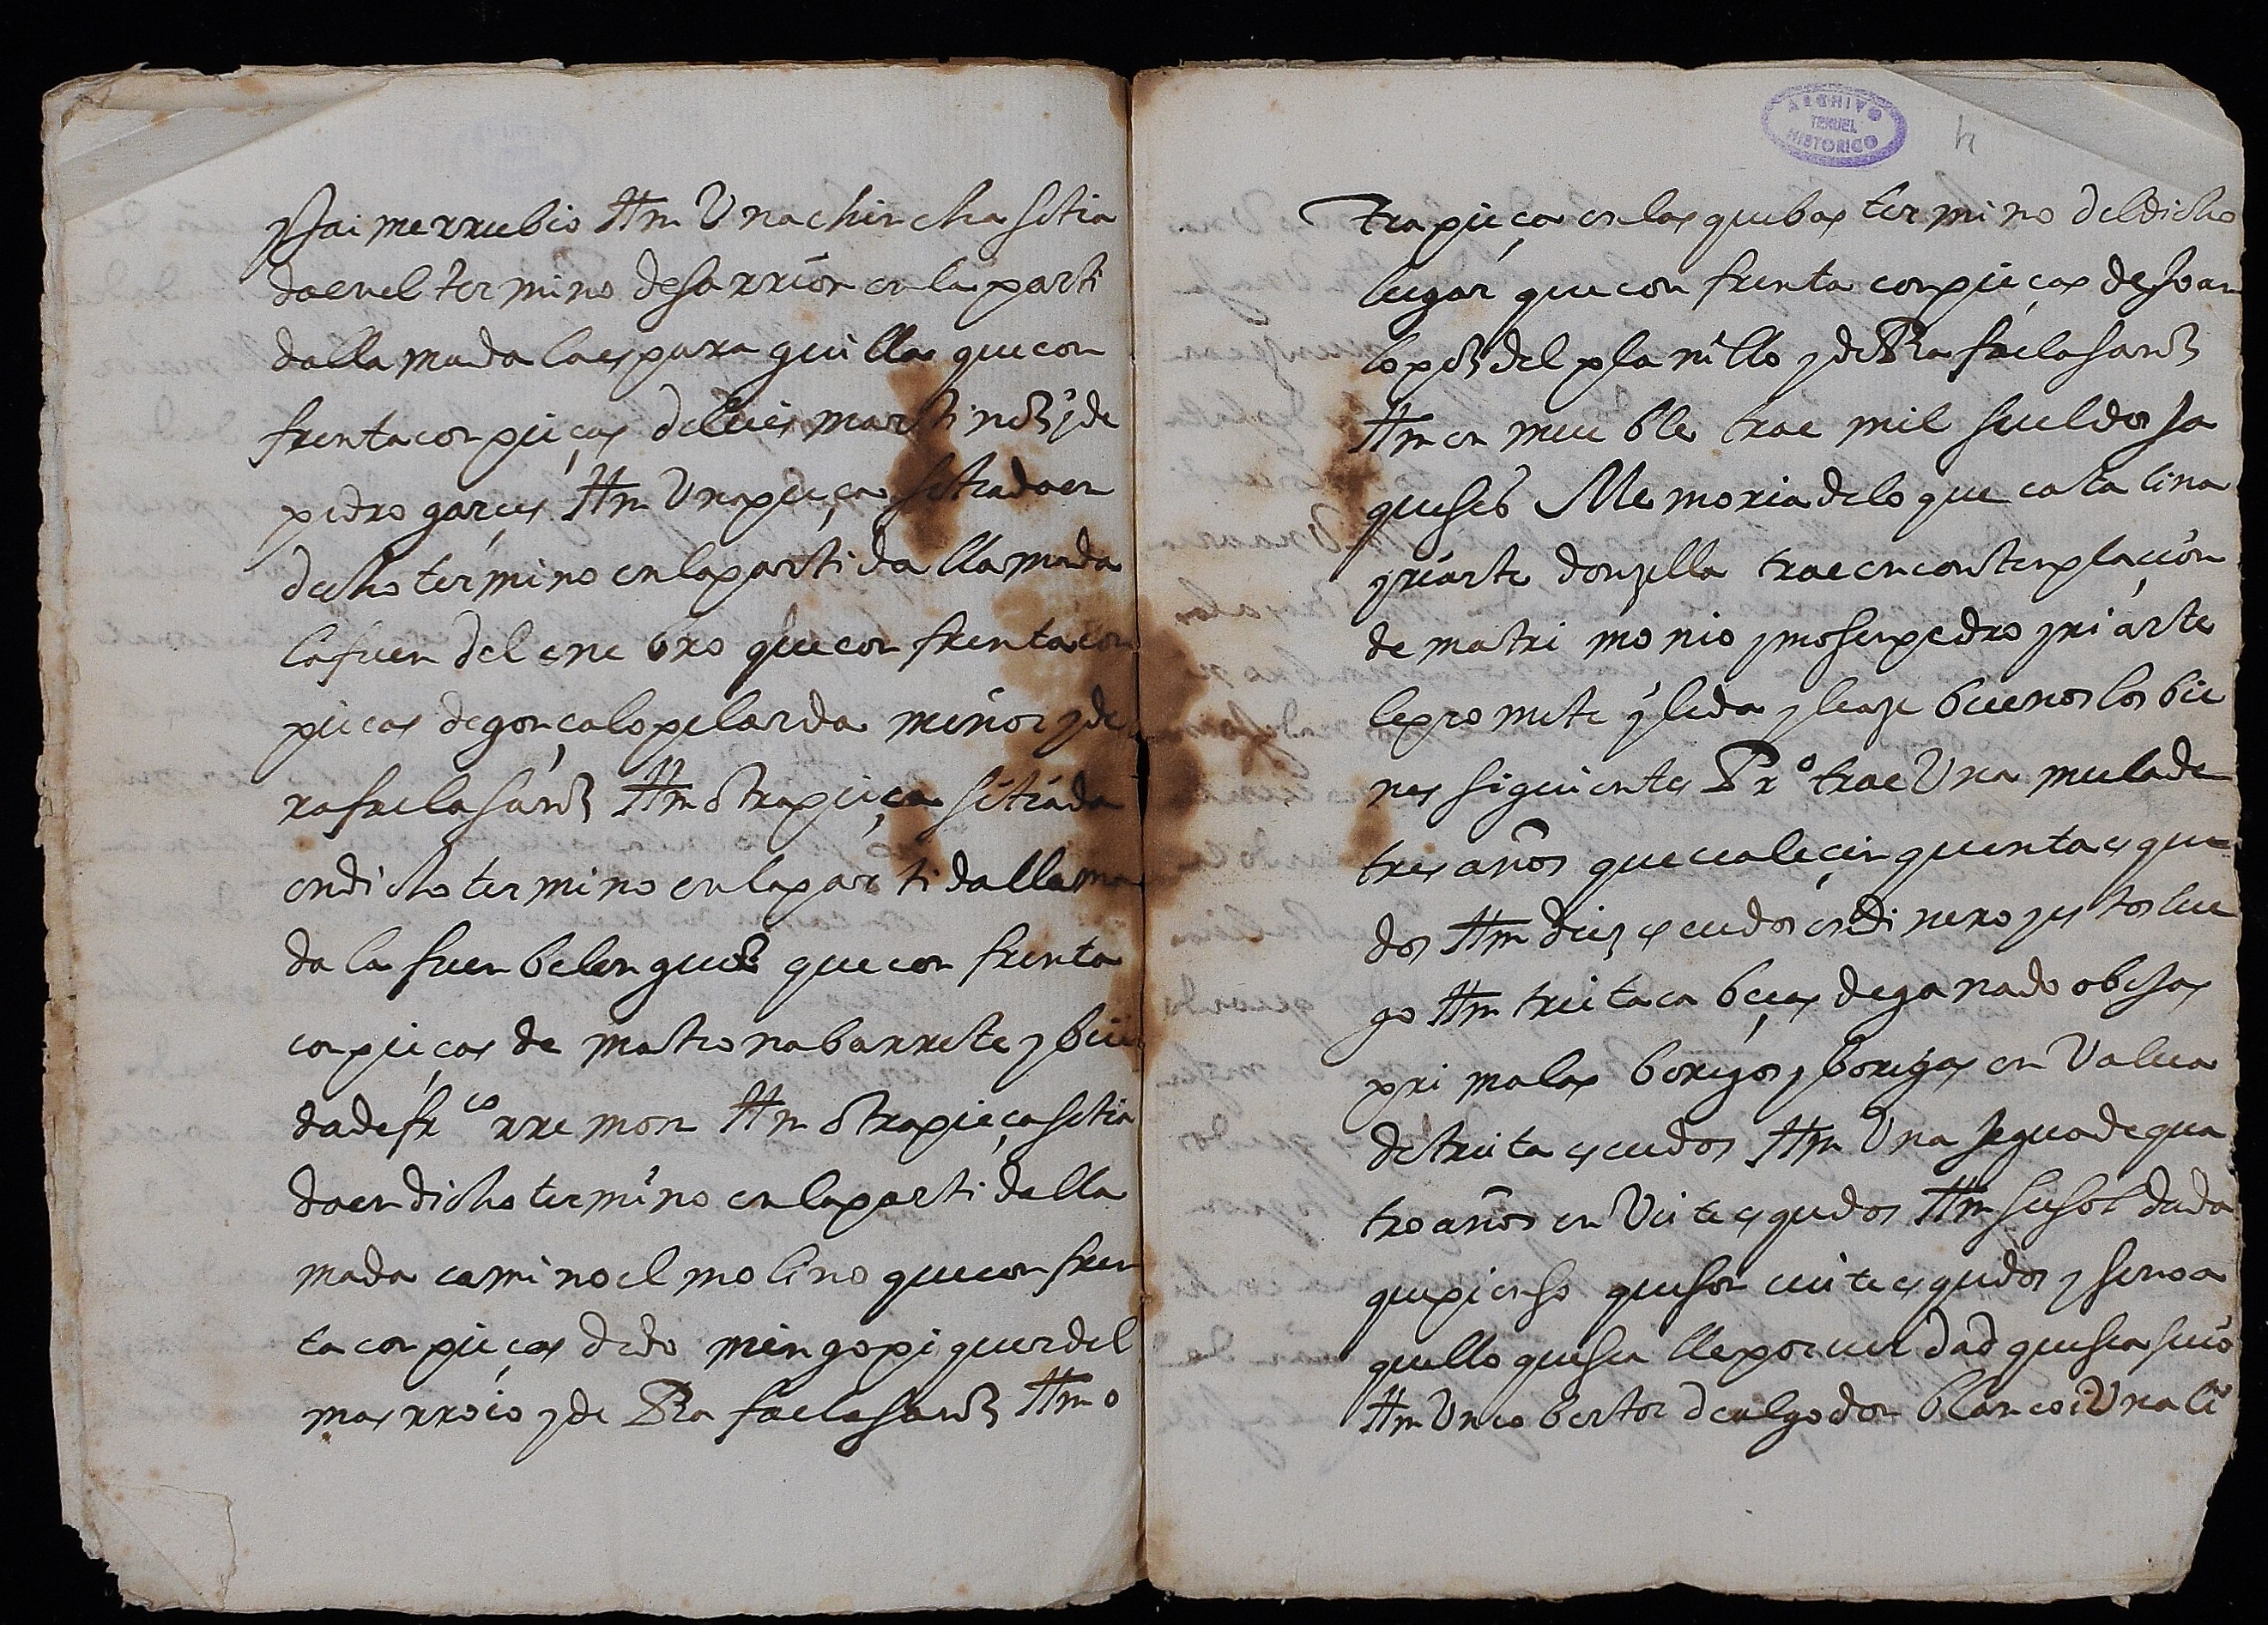 y Jaime rrubio Itm Una chincha sitia
da en el termino de sarrion en la parti
da llamada la esparraguilla que con
frenta con pieças de luis martinez y de
pedro garçes Itm Una pieça sitiada en
dicho termino en la partida llamada
la fuen del enebro que confrenta con
pieças de gonçalo pelarda menor y de
rafaela sanz Itm otra pieça sitiada
en dicho termino en la partida llama
da la fuen belenguer que confrenta
con pieças de mastro nabarrete y biu
da de frco rremon Itm otra pieça sitia
da en dicho termino en la partida lla
mada camino el molino que confren
ta con pieças de domingo piquer del
mas rroio y de Rafaela sanz Itm o
ARCHIVO
TERUEL
HISTORICO
4
tra pieça en las quebas termino del dicho
lugar que confrenta con pieças de Joan
lopez del planillo y de Rafaela sanz
Itm en mueble trae mil sueldos Ja
queses Memoria de lo que catalina
yriarte donzella trae en contenplaçion
de matrimonio y mosen pedro yriarte
le promete y le da y le aze buenos los bie
nes siguientes Pro trae Una mula de
tres años que uale çinquenta esqu
dos Itm diez escudos en dinero y estos lue
go Itm treita cabeças de ganado obejas
primalas boregos y boregas en Valua
de treita escudos Itm Una Jegua de qua
tro años en Veite esqudos Itm su soldada
que pienso que son ueite esqudos y seno a
quello que se alle por uerdad que sea suio
Itm Un cobertor de algodon blanco i Una li